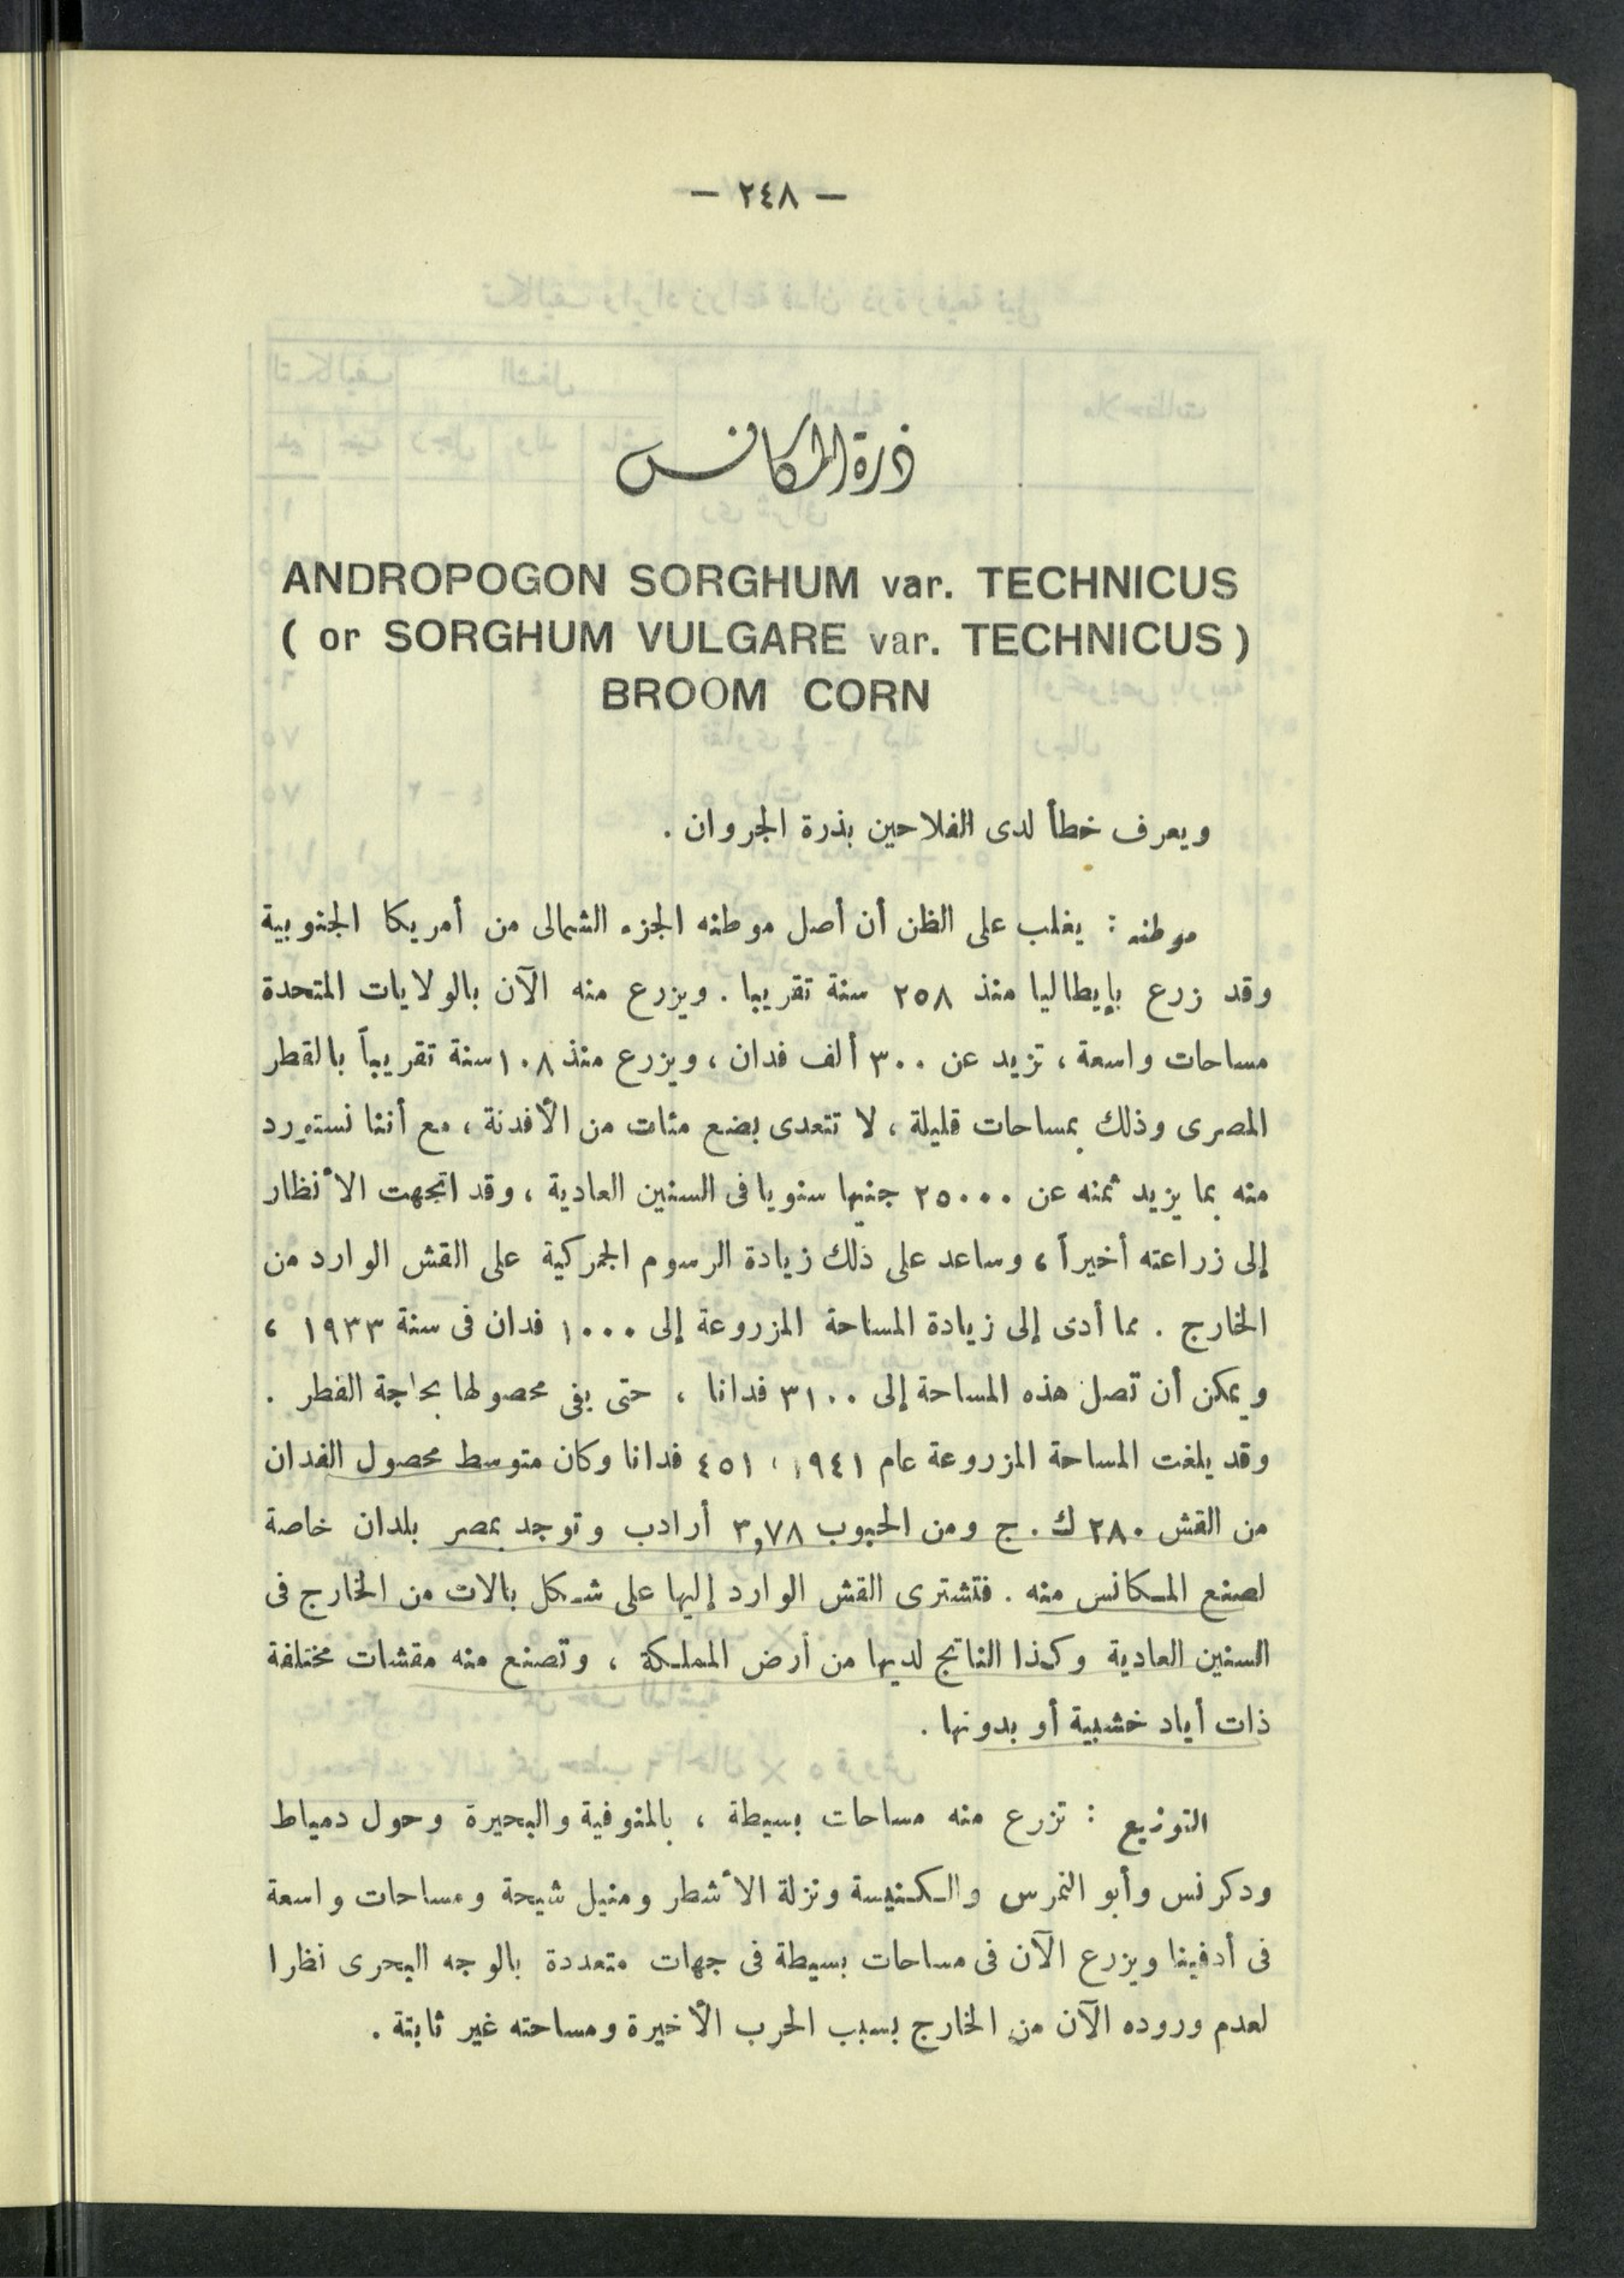 — ٢٤٨ —
ذرة المكانس
ANDROPOGON SORGHUM var. TECHNICUS
( or SORGHUM VULGARE var. TECHNICUS )
BROOM CORN
ويعرف خطأ لدى الفلاحين بذرة الجروان .
موطنه : يغلب على الظن أن أصل موطنه الجزء الشمالى من أمريكا الجنوبية
وقد زرع بإيطاليا منذ ٢٥٨ سنة تقريبا . ويزرع منه الآن بالولايات المتحدة
مساحات واسعة ، تزيد عن ٣٠٠ ألف فدان ، ويزرع منذ ١٠٨ سنة تقريباً بالقطر
المصرى وذلك بمساحات قليلة ، لا تتعدى بضع مئات من الأفدنة ، مع أننا نستورد
منه بما يزيد ثمنه عن ٢٥٠٠٠ جنيها سنويا فى السنين العادية ، وقد اتجهت الأنظار
إلى زراعته أخيراً ، وساعد على ذلك زيادة الرسوم الجمركية على القش الوارد من
الخارج . مما أدى إلى زيادة المساحة المزروعة إلى ١٠٠٠ فدان فى سنة ١٩٣٣ ،
ويمكن أن تصل هذه المساحة إلى ٣١٠٠ فدانا ، حتى يفى محصولها بحاجة القطر .
وقد بلغت المساحة المزروعة عام ١٩٤١ ، ٤٥١ فدانا وكان متوسط محصول الفدان
من القش ٢٨٠ ك . ج ومن الحبوب ٣,٧٨ أرادب وتوجد بمصر بلدان خاصة
لصنع المكانس منه . فتشترى القش الوارد إليها على شكل بالات من الخارج فى
السنين العادية وكذا الناتج لديها من أرض المملكة ، وتصنع منه مقشات مختلفة
ذات أياد خشبية أو بدونها .
التوزيع : تزرع منه مساحات بسيطة ، بالمنوفية والبحيرة وحول دمياط
ودكرنس وأبو النمرس والكنيسة ونزلة الأشطر ومنيل شيحة ومساحات واسعة
فى أدفينا ويزرع الآن فى مساحات بسيطة فى جهات متعددة بالوجه البحرى نظرا
لعدم وروده الآن من الخارج بسبب الحرب الأخيرة ومساحته غير ثابتة .